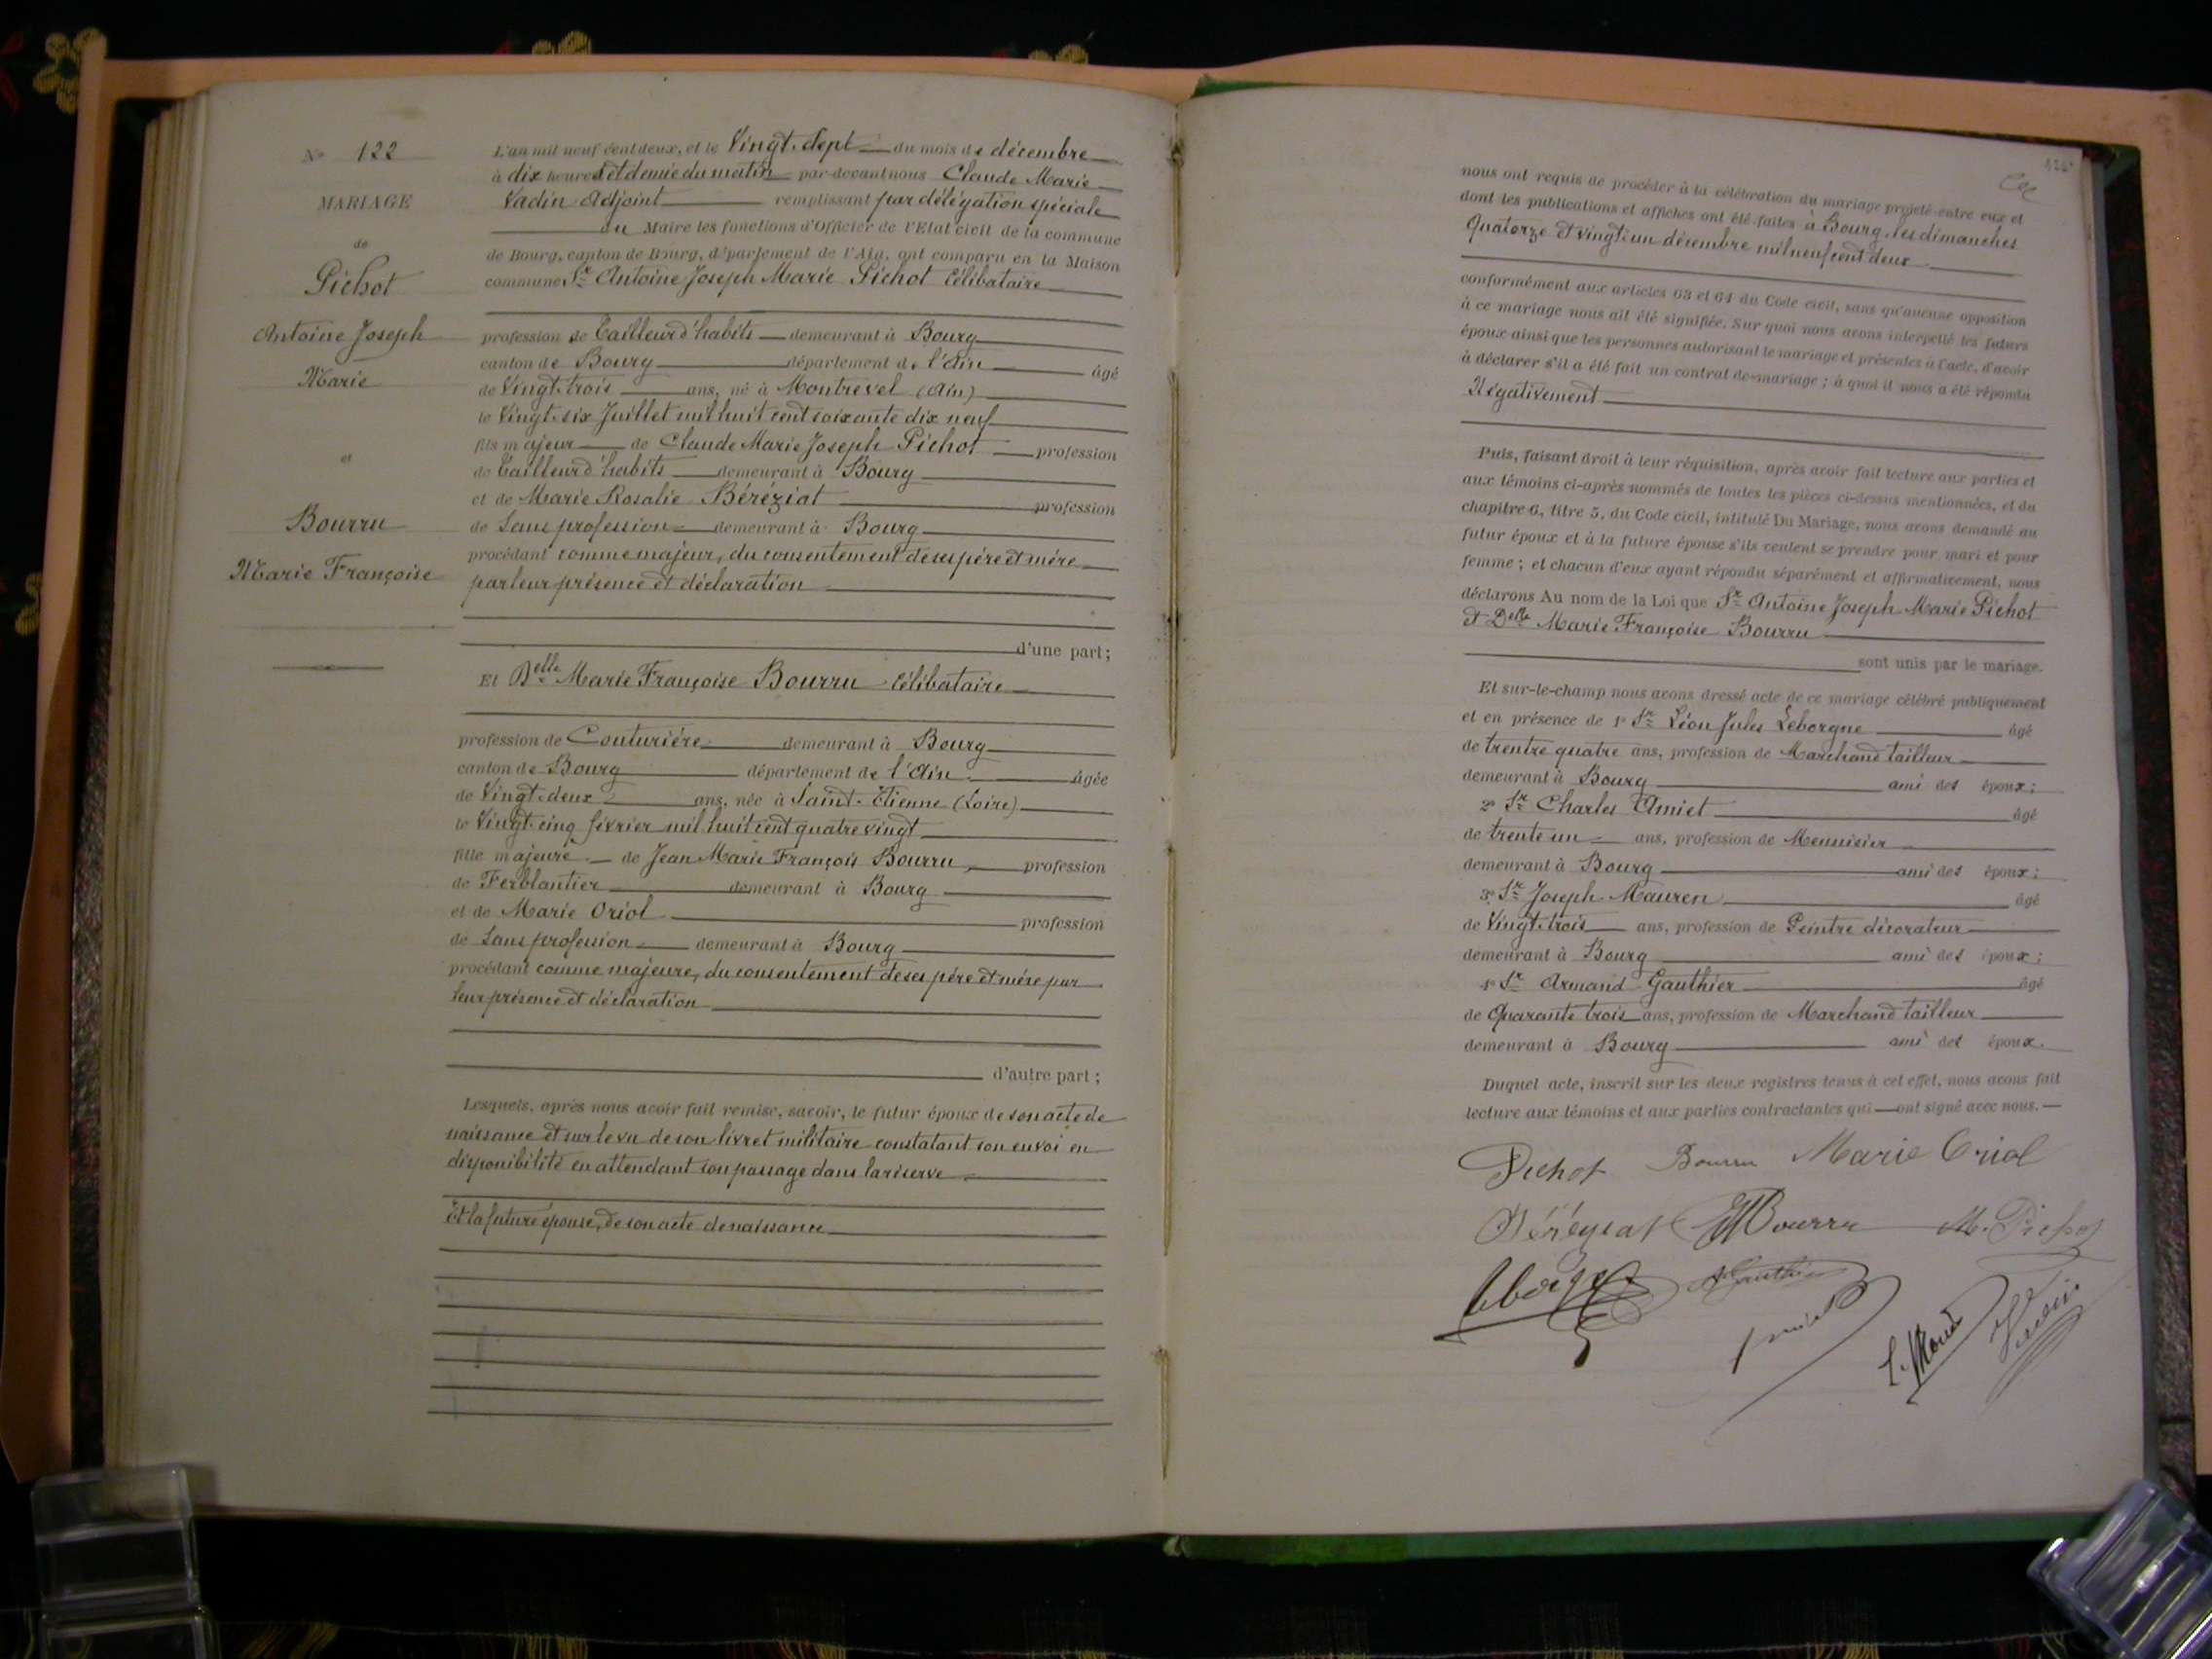 N° 122
MARIAGE
de
Pichot
Antoine Joseph
Marie
et
Bourru
Marie Françoise
L'an mil neuf cent deux, et le Vingt-Sept du mois de décembre
à dix heures et demie du matin par-devant nous Claude Marie
Vadin Adjoint remplissant par délégation spéciale
du Maire les fonctions d'Officier de l'Etat civil de la commune
de Bourg, canton de Bourg, département de l'Ain, ont comparu en la Maison
commune Sr Antoine Joseph Marie Pichot Célibataire
profession de Tailleur d'habits demeurant à Bourg
canton de Bourg département de l'Ain âgé
de Vingt-trois ans, né à Montrevel (Ain)
le Vingt-six Juillet mil huit cent soixante dix neuf
fils majeur de Claude Marie Joseph Pichot profession
de Tailleur d'habits demeurant à Bourg
et de Marie Rosalie Béréziat profession
de Sans profession demeurant à Bourg
procédant comme majeur, du consentement de ses père et mère
par leur présence et déclaration
d'une part;
Et Delle Marie Françoise Bourru Célibataire
profession de Couturière demeurant à Bourg
canton de Bourg département de l'Ain âgée
de Vingt-deux ans, née à Saint-Etienne (Loire)
le Vingt-cinq février mil huit cent quatre vingt
fille majeure de Jean Marie François Bourru profession
de Ferblantier demeurant à Bourg
et de Marie Oriol profession
de Sans profession demeurant à Bourg
procédant comme majeure, du consentement de ses père et mère par
leur présence et déclaration
d'autre part;
Lesquels, après nous avoir fait remise, savoir, le futur époux de son acte de
naissance et sur le vu de son livret militaire constatant son envoi en
disponibilité en attendant son passage dans la réserve
Et la future épouse, de son acte de naissance
nous ont requis de procéder à la célébration du mariage projeté entre eux et
dont les publications et affiches ont été faites à Bourg, les dimanches
Quatorze et vingt-un décembre mil neuf cent deux
conformément aux articles 63 et 64 du Code civil, sans qu'aucune opposition
à ce mariage nous ait été signifiée. Sur quoi nous avons interpellé les futurs
époux ainsi que les personnes autorisant le mariage et présentes à l'acte, d'avoir
à déclarer s'il a été fait un contrat de mariage; à quoi il nous a été répondu
Négativement
Puis, faisant droit à leur réquisition, après avoir fait lecture aux parties et
aux témoins ci-après nommés de toutes les pièces ci-dessus mentionnées, et du
chapitre 6, titre 5, du Code civil, intitulé Du Mariage, nous avons demandé au
futur époux et à la future épouse s'ils veulent se prendre pour mari et pour
femme; et chacun d'eux ayant répondu séparément et affirmativement, nous
déclarons Au nom de la Loi que Sr Antoine Joseph Marie Pichot
et Delle Marie Françoise Bourru
sont unis par le mariage.
Et sur-le-champ nous avons dressé acte de ce mariage célébré publiquement
et en présence de 1° Sr Léon Jules Leborgne âgé
de trentre quatre ans, profession de Marchand tailleur
demeurant à Bourg ami des époux;
2° Sr Charles Amiet âgé
de trente un ans, profession de Menuisier
demeurant à Bourg ami des époux;
3° Sr Joseph Mauren âgé
de Vingt-trois ans, profession de Peintre décorateur
demeurant à Bourg ami des époux;
4° Sr Armand Gauthier âgé
de Quarante trois ans, profession de Marchand tailleur
demeurant à Bourg ami des époux.
Duquel acte, inscrit sur les deux registres tenus à cet effet, nous avons fait
lecture aux témoins et aux parties contractantes qui ont signé avec nous.
Pichot Bourru Marie Oriol
Béréziat Bourru M. Pichot
A Gauthier